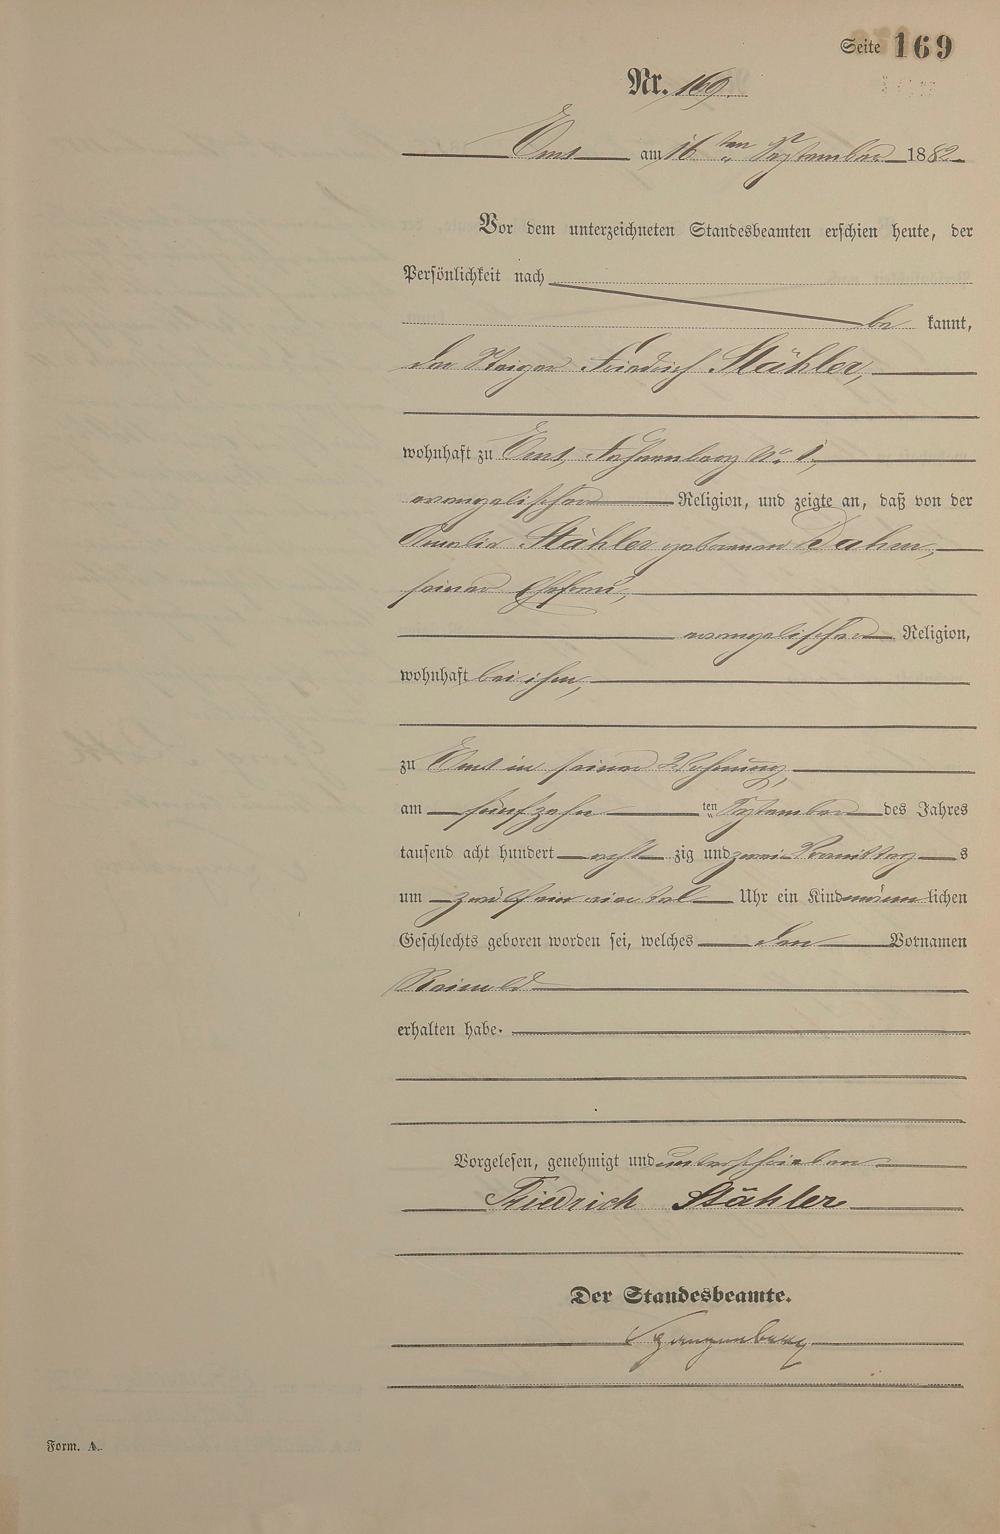 Seite 169
Nr. 169.
Ems am 16 ten September 1882.
Vor dem unterzeichneten Standesbeamten erschien heute, der
Persönlichkeit nach
be kannt,
der Steiger Friedrich Stähler,
wohnhaft zu Ems, No. 1.
evangelischer Religion, und zeigte an, daß von der
Amalie Stähler geborenen Dahm,
seiner Ehefrau,
evangelischer Religion,
wohnhaft bei ihm,
zu Ems in seiner Wohnung,
am fünfzehn ten September des Jahres
tausend acht hundert acht zig und zwei Vormittags
um zwölf ein viertel Uhr ein Kind männlichen
Geschlechts geboren worden sei, welches den Vornamen
erhalten habe.
Vorgelesen, genehmigt und unterschrieben
Friedrich Stähler
Der Standesbeamte.
Form. A.